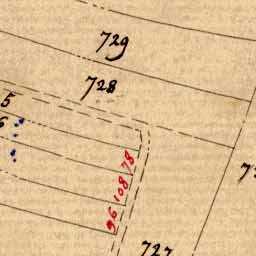 729
728
5
6
78
108
96
727